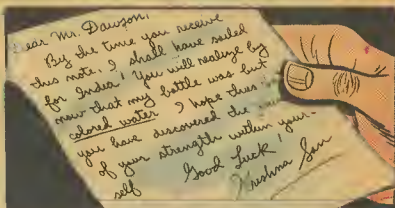 Dear Mr. Dawson,
By the time you receive
this note, I shall have sailed
for India! You will realize by
now that my bottle was but
colored water I hope thus
you have discovered the
of your strength within your-
self Good Luck!
Krishna San